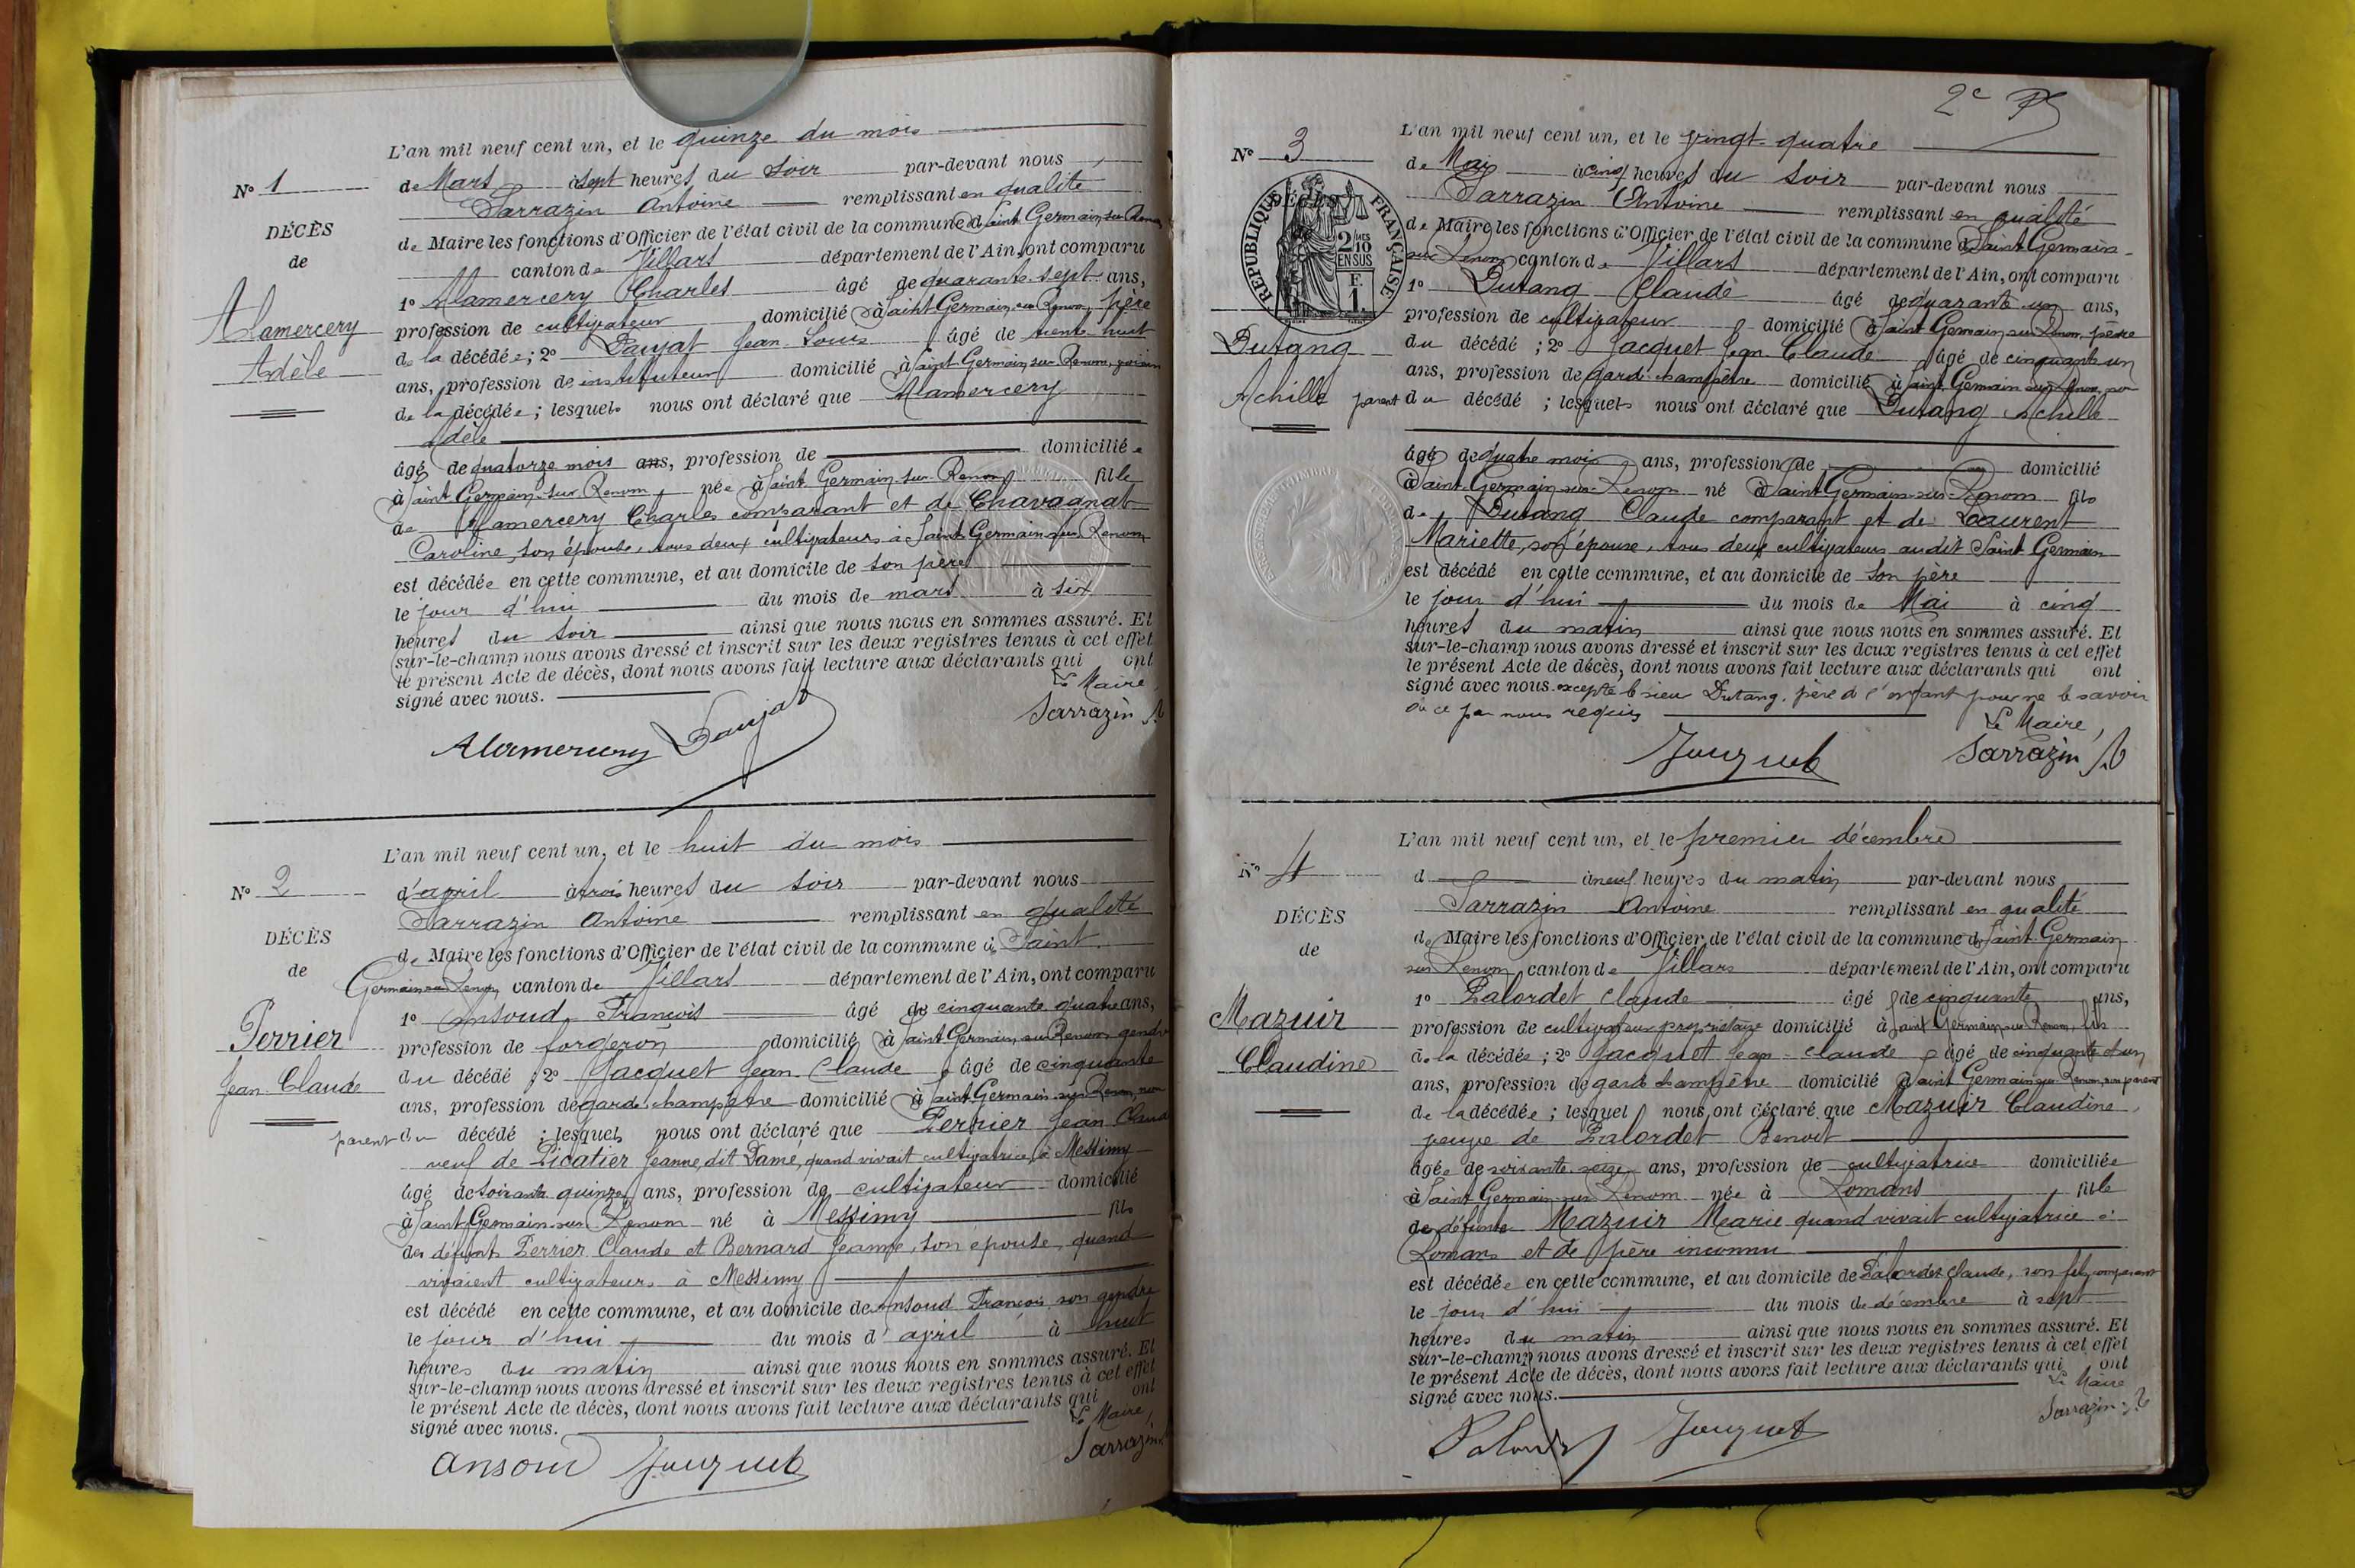 N° 1
DÉCÈS
de
Alamercery
Adèle
L'an mil neuf cent un, et le quinze du mois
de Mars à sept heures du soir par-devant nous
Sarrazin Antoine remplissant en qualité
de Maire les fonctions d'Officier de l'état civil de la commune de Saint Germain sur Renom
canton de Villars département de l'Ain, ont comparu
1° Alamercery Charles âgé de quarante sept ans,
profession de cultivateur domicilié à Saint Germain sur Renom, père
de la décédée; 2° Daujat Jean Louis âgé de trente huit
ans, profession de instituteur domicilié à Saint Germain sur Renom, voisin
de la décédée; lesquels nous ont déclaré que Alamercery
Adèle
âgé de quatorze mois ans, profession de domiciliée
à Saint Germain sur Renom née à Saint Germain sur Renom fille
de Alamercery Charles comparant et de Chavagnat
Caroline, son épouse, tous deux cultivateurs à Saint Germain sur Renom
est décédée en cette commune, et au domicile de son père
le jour d'hui du mois de mars à six
heures du soir ainsi que nous nous en sommes assuré. Et
sur-le-champ nous avons dressé et inscrit sur les deux registres tenus à cet effet
le présent Acte de décès, dont nous avons fait lecture aux déclarants qui ont
signé avec nous.
Le Maire,
Alamercery Daujat Sarrazin A
N° 2
DÉCÈS
de
Perrier
Jean Claude
L'an mil neuf cent un, et le huit du mois
d'avril à trois heures du soir par-devant nous
Sarrazin Antoine remplissant en qualité
de Maire les fonctions d'Officier de l'état civil de la commune de Saint
Germain sur Renom canton de Villars département de l'Ain, ont comparu
1° Ansoud François âgé de cinquante quatre ans,
profession de forgeron domicilié à Saint Germain sur Renom gendre
du décédé; 2° Jacquet Jean Claude âgé de cinquante
ans, profession de garde champêtre domicilié à Saint Germain sur Renom, non
parent du décédé; lesquels nous ont déclaré que Perrier Jean Claude
veuf de Picatier Jeanne, dit Dame, quand vivait cultivatrice, à Messimy
âgé de soixante quinze ans, profession de cultivateur domicilié
à Saint Germain sur Renom né à Messimy fils
des défunts Perrier Claude et Bernard Jeanne, son épouse, quand
vivaient cultivateurs à Messimy
est décédé en cette commune, et au domicile de Ansoud François, son gendre
le jour d'hui du mois d'avril à huit
heures du matin ainsi que nous nous en sommes assuré. Et
sur-le-champ nous avons dressé et inscrit sur les deux registres tenus à cet effet
le présent Acte de décès, dont nous avons fait lecture aux déclarants qui ont
signé avec nous.
Le Maire,
Ansoud Jacquet Sarrazin
2e
N° 3
DÉCÈS
RÉPUBLIQUE FRANÇAISE
2/10 EN SUS
F. 1.
Dutang
Achille
L'an mil neuf cent un, et le vingt quatre
de Mai à cinq heures du soir par-devant nous
Sarrazin Antoine remplissant en qualité
de Maire les fonctions d'Officier de l'état civil de la commune de Saint Germain
sur Renom canton de Villars département de l'Ain, ont comparu
1° Dutang Claude âgé de quarante un ans,
profession de cultivateur domicilié à Saint Germain sur Renom, père
du décédé; 2° Jacquet Jean Claude âgé de cinquante un
ans, profession de garde champêtre domicilié à Saint Germain sur Renom, non
parent du décédé; lesquels nous ont déclaré que Dutang Achille
âgé de quatre mois ans, profession de domicilié
à Saint Germain sur Renom né à Saint Germain sur Renom fils
de Dutang Claude comparant et de Laurent
Mariette, son épouse, tous deux cultivateurs audit Saint Germain
est décédé en cette commune, et au domicile de son père
le jour d'hui du mois de Mai à cinq
heures du matin ainsi que nous nous en sommes assuré. Et
sur-le-champ nous avons dressé et inscrit sur les deux registres tenus à cet effet
le présent Acte de décès, dont nous avons fait lecture aux déclarants qui ont
signé avec nous excepté le sieur Dutang, père de l'enfant pour ne le savoir
de ce par nous requis
Le Maire,
Jacquet Sarrazin A
N° 4
DÉCÈS
de
Mazuir
Claudine
L'an mil neuf cent un, et le premier décembre
d à neuf heures du matin par-devant nous
Sarrazin Antoine remplissant en qualité
de Maire les fonctions d'Officier de l'état civil de la commune de Saint Germain
sur Renom canton de Villars département de l'Ain, ont comparu
1° Palordet Claude âgé de cinquante ans,
profession de cultivateur propriétaire domicilié à Saint Germain sur Renom fils
de la décédée; 2° Jacquet Jean-Claude âgé de cinquante et un
ans, profession de garde champêtre domicilié à Saint Germain sur Renom, non parent
de la décédée; lesquels nous ont déclaré que Mazuir Claudine,
veuve de Palordet Benoit
âgée de soixante seize ans, profession de cultivatrice domiciliée
à Saint Germain sur Renom née à Romans fille
de défunte Mazuir Marie quand vivait cultivatrice à
Romans et de père inconnu
est décédée en cette commune, et au domicile de Palordet Claude, son fils, comparant
le jour d'hui du mois de décembre à sept
heures du matin ainsi que nous nous en sommes assuré. Et
sur-le-champ nous avons dressé et inscrit sur les deux registres tenus à cet effet
le présent Acte de décès, dont nous avons fait lecture aux déclarants qui ont
signé avec nous.
Le Maire
Palordet Jacquet Sarrazin A